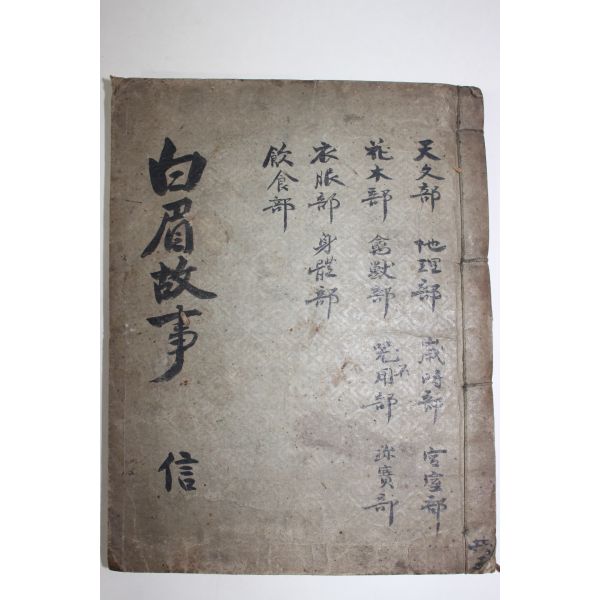 天文部 地理部 歲時部 宮室部
花木部 禽獸部 器用部 珍寶部
衣服部 身體部
飮食部
白眉故事 信